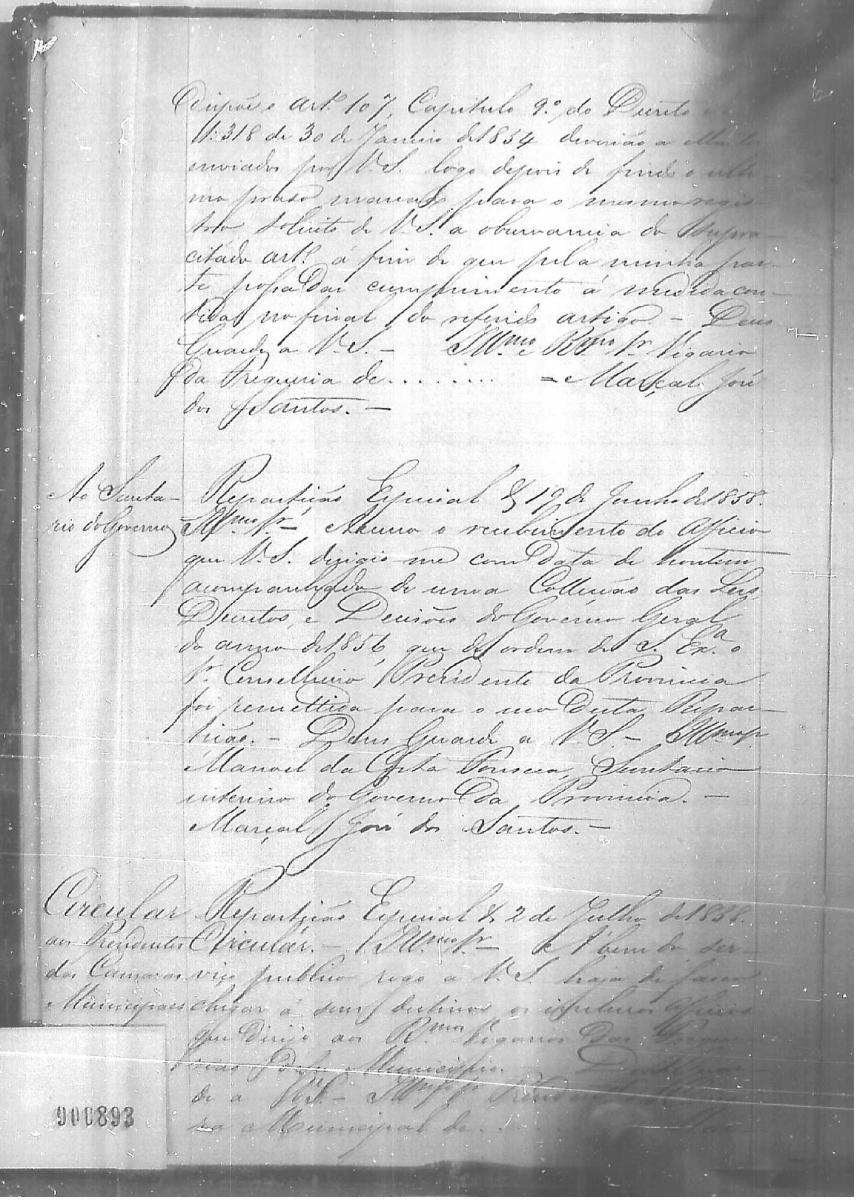 Dispõe o artº 107, Capitulo 9.º do Decreto
N. 1318 de 30 de Janeiro de 1854 deverião a ella
enviados por V. S. logo depois de findo o ulti-
mo praso marcado para o mesmo regis-
tro solicito de V. S. a observancia do supra-
citado artº á fim de que pela minha par-
te possa dar cumprimento á medida con-
tida no final do referido artigo. – Deus
Guarde a V. S. – Illmo e Rmo Sr Vigario
da Freguesia de.......... = Marçal José
dos Santos. –
Ao Secreta-
rio do Governo
Repartição Especial & 19 de Junho de 1858.
Illmo Sr – Accuso o recebimento do officio
que V. S. dirigio me com data de hontem
acompanhado de uma Collecção das Leis
Decretos, e Decisões do Governo Geral
do anno de 1856, que de ordem de S. Exa o
Sr Conselheiro Presidente da Provincia
foi remettida para o uso desta Repar-
tição. – Deus Guarde a V. S. – Illmo Sr
Manoel da Costa Fonseca, Secretario
interino do Governo da Provincia. –
Marçal José dos Santos. –
Circular
aos Presidentes
das Camaras
Municipaes
Repartição Especial & 2 de Julho de 1858.
Circular. – Illmo Sr – A bem do ser-
viço publico rogo a V. S. haja de fazer
chegar á seus destinos os inclusos officios
que dirijo aos Rmos Vigarios das Fregue-
sias desse Municipio. –
de a V. S. – Illmo Sr Presidente
ra Municipal de
900893